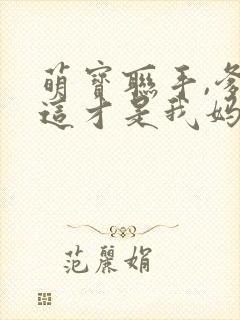 萌寶聯手,爹
這才是我媽
范麗娟